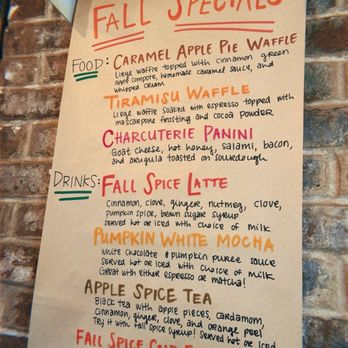 FALL SPECIALS
FOOD: CARAMEL APPLE PIE WAFFLE
Liege waffle topped with cinnamon green
apple compote, homemade caramel sauce, and
whipped cream
TIRAMISU WAFFLE
Liege waffle soaked with espresso topped with
mascarpone frosting and cocoa powder
CHARCUTERIE PANINI
Goat cheese, hot honey, salami, bacon,
and arugula toasted on sourdough
DRINKS: FALL SPICE LATTE
Cinnamon, clove, ginger, nutmeg, clove,
pumpkin spice, brown sugar syrup
served hot or iced with choice of milk
PUMPKIN WHITE MOCHA
White chocolate & pumpkin puree sauce
served hot or iced with choice of milk
Great with either espresso or matcha!
APPLE SPICE TEA
Black tea with apple pieces, cardamom,
Cinnamon, ginger, clove, and orange peel
Try it with fall spice syrup! served hot or iced
FALL SPICE